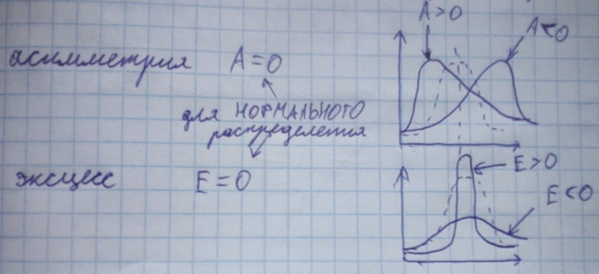 A>0
A<0
асимметрия A=0
для НОРМАЛЬНОГО
распределения
эксцесс E=0
E>0
E<0